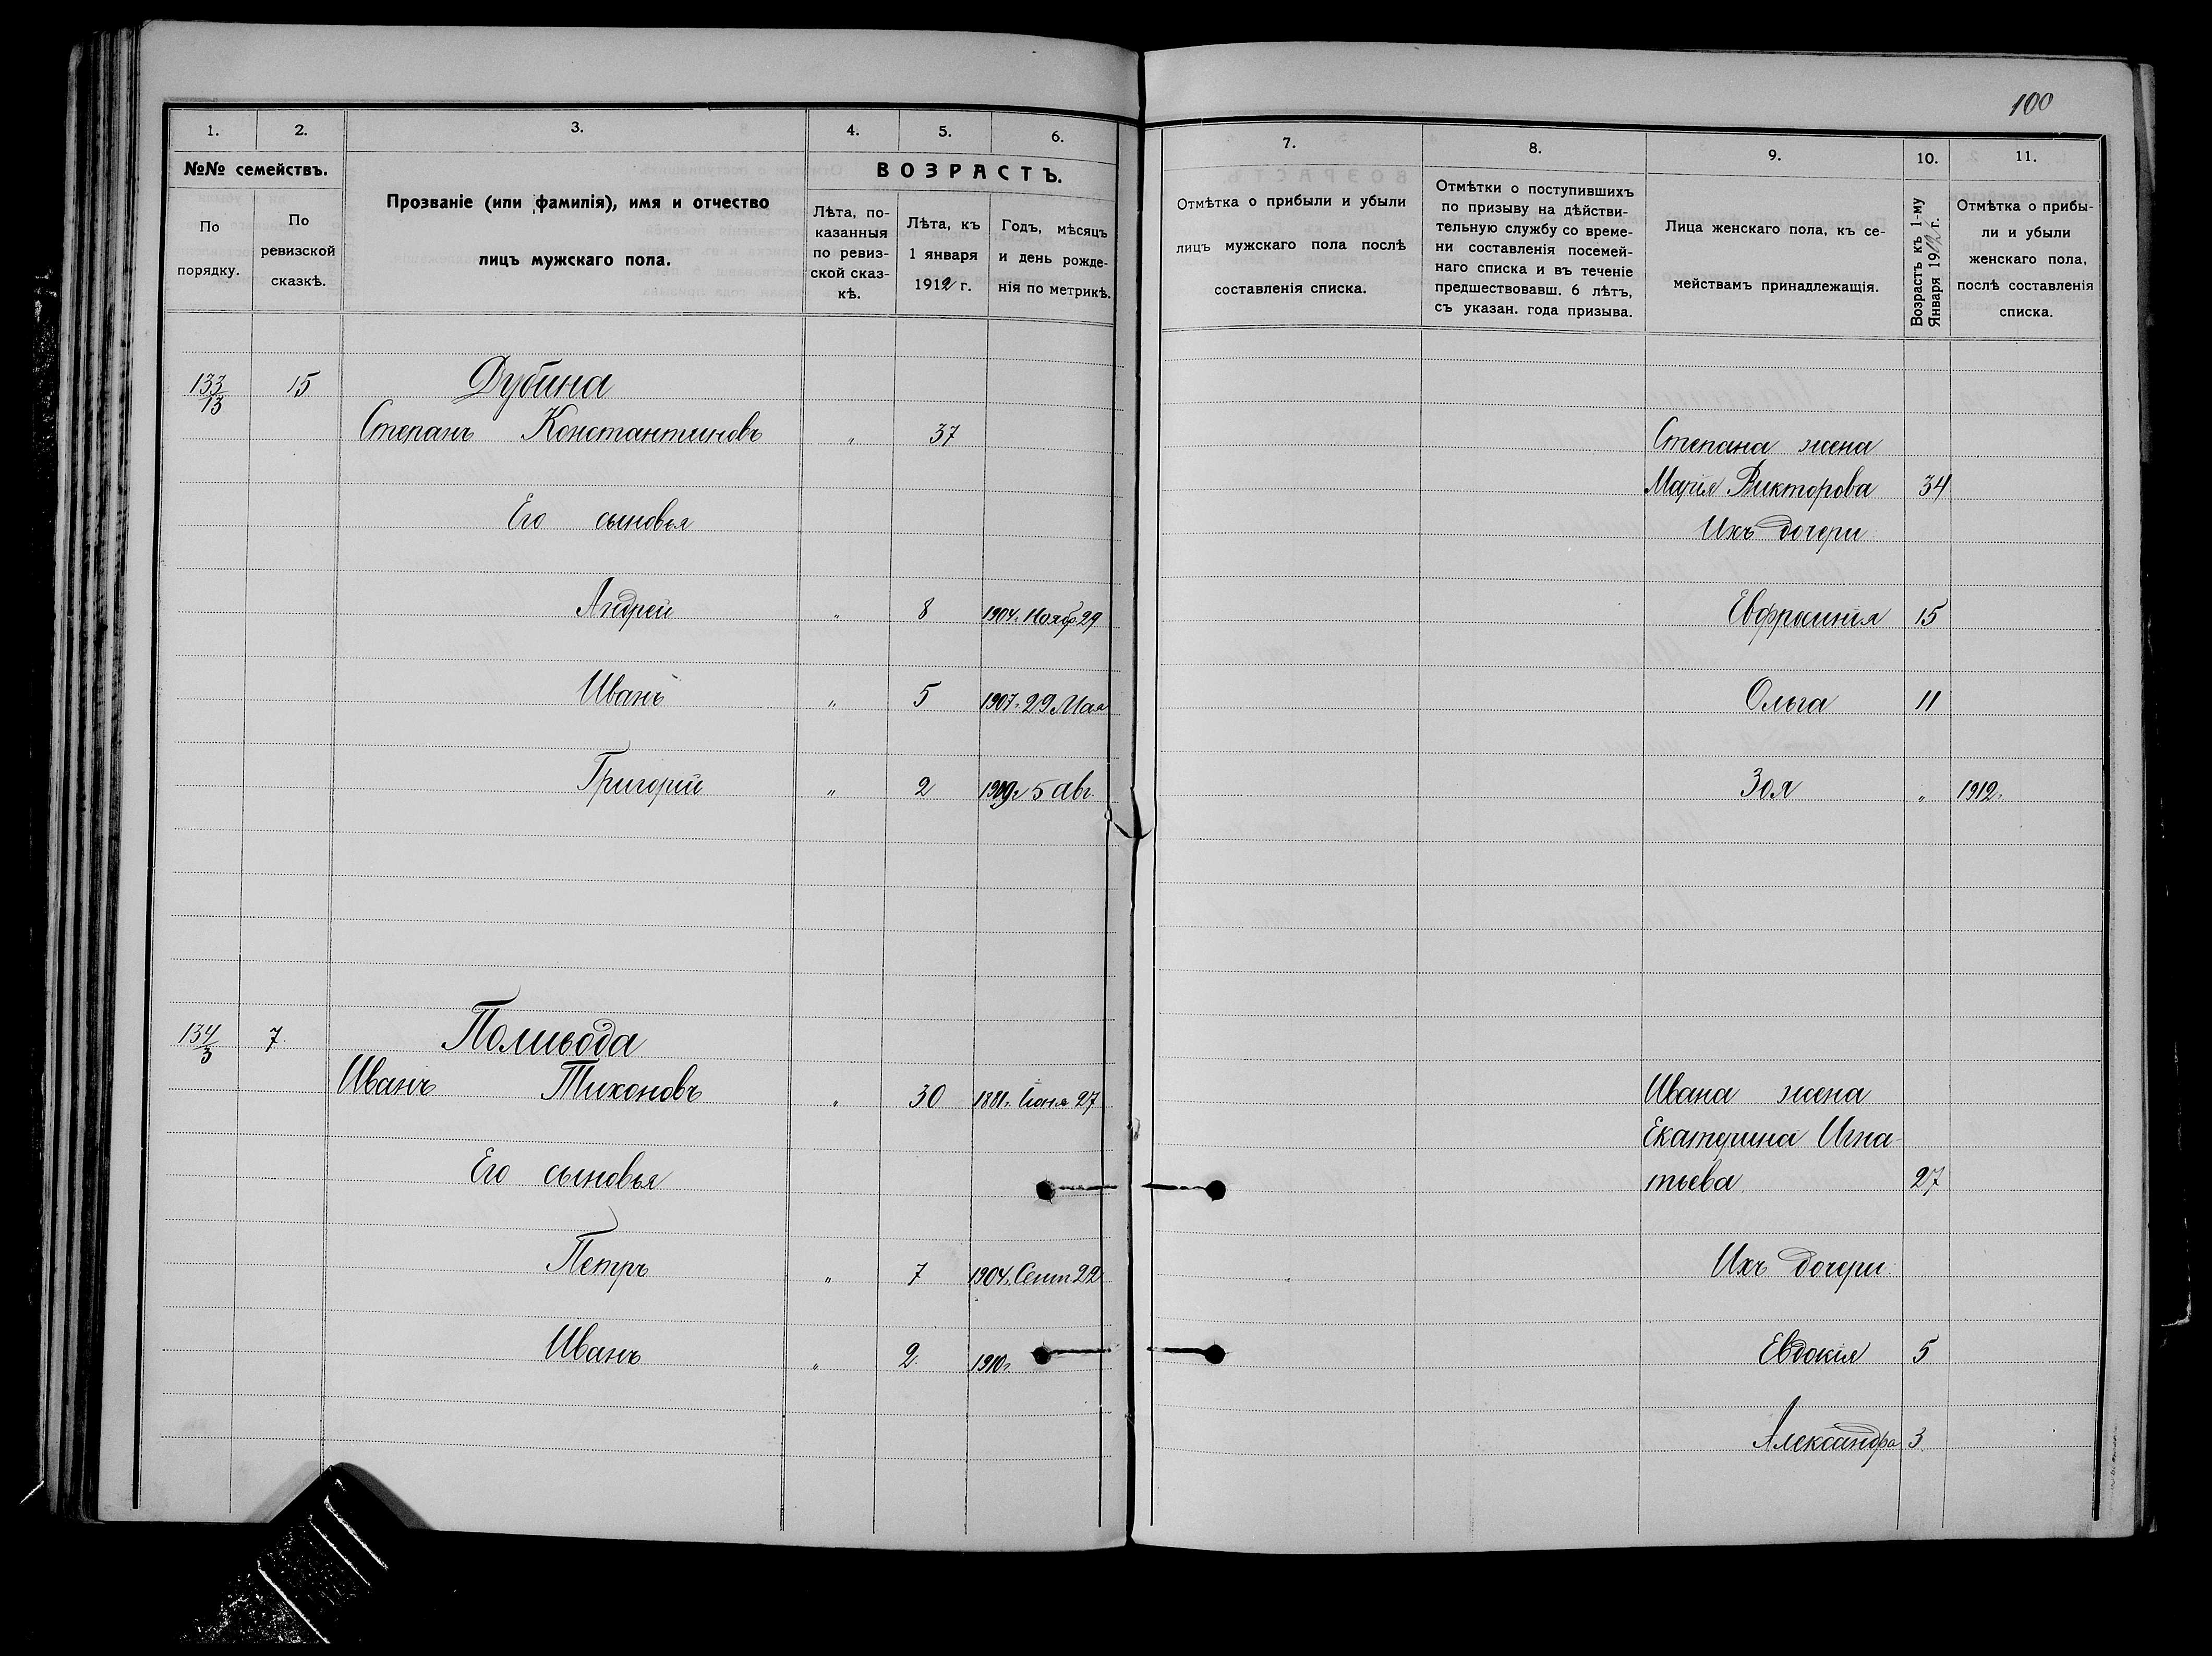 100
1. 2. 3. 4. 5. 6.
№№ семействъ.
По порядку.
По ревизской сказкѣ.
Прозваніе (или фамилія), имя и отчество
лицъ мужскаго пола.
ВОЗРАСТЪ.
Лѣта, по-
казанныя
по ревиз-
ской сказ-
кѣ.
Лѣта, къ
1 января
1912 г.
Годъ, мѣсяцъ
и день рожде-
нія по метрикѣ.
7. 8. 9. 10. 11.
Отмѣтка о прибыли и убыли
лицъ мужскаго пола послѣ
составленія списка.
Отмѣтки о поступившихъ
по призыву на дѣйстви-
тельную службу со време-
ни составленія посемей-
наго списка и въ теченіе
предшествовавш. 6 лѣтъ,
съ указан. года призыва.
Лица женскаго пола, къ се-
мействамъ принадлежащія.
Возрастъ къ 1-му
Января 1912 г.
Отмѣтка о прибы-
ли и убыли
женскаго пола,
послѣ составленія
списка.
133/13 15 Дубина
Степанъ Константиновъ " 37
Его сыновья
Андрей " 8 1904г. Ноябр 29
Иванъ " 5 1907г. 29 Мая
Григорій " 2 1909г 5 Авг.
134/3 7. Поливода
Иванъ Тихоновъ " 30 1881г. Іюня 27
Его сыновья
Петръ " 7 1904г. Сент 22
Иванъ " 2. 1910г.
Степана жена
Марія Викторова 34
Ихъ дочери
Евфросинія 15
Ольга 11
Зоя " 1912г.
Ивана жена
Екатерина Игна-
тьева 27
Ихъ дочери
Евдокія 5
Александра 3